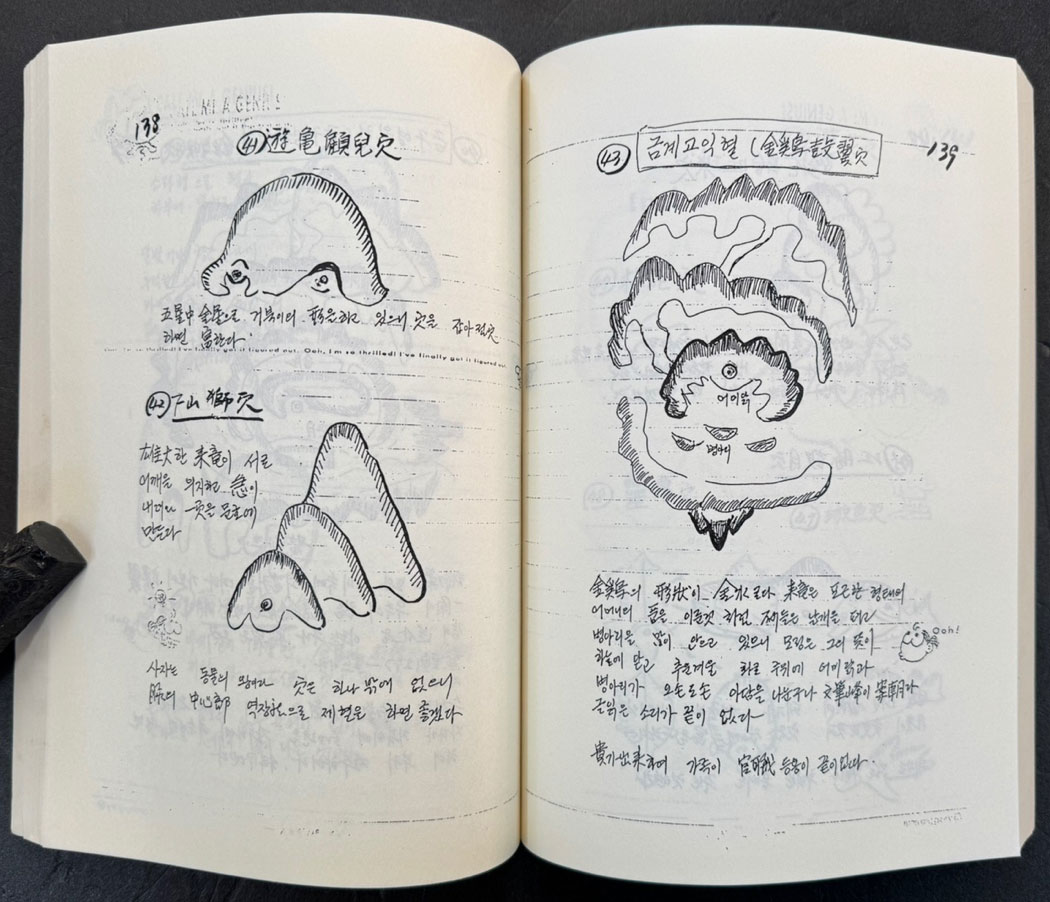 138
㊶ 遊龜顧兒穴
五星中 金星으로 거북이의 形을 하고 있으니 穴을 잡아 점穴
하면 富한다.
I've finally got it figured out. Ooh, I'm so thrilled! I've finally got it figured out.
㊷ 下山獅穴
雄大한 來龍이 서로
어깨을 의지하고 急이
내려와
만든다
사자는 동물의 왕이라 穴은 하나 밖에 없으니
中心部 역장법으로 제혈은 하면 좋겠다
139
㊸ 금계고익혈 (金鷄鼓翼穴
어미닭
병아리
金鷄의 形狀이 金水로다 來龍은 포근한 형태의
어머니의 품을 이룬것 하련 제비는 날개을 펴고
병아리을 많이 안으고 있으니 모정은 그의 뜻이
하늘에 닿고 추운겨울 화로 주위에 어미닭과
병아리가 오손도손 아담을 나눈구나 文筆峰이 案朝라
글읽은 소리가 끝이 없다
Ooh!
貴가 出來하며 가족이 官職 등용이 끝이 없다.